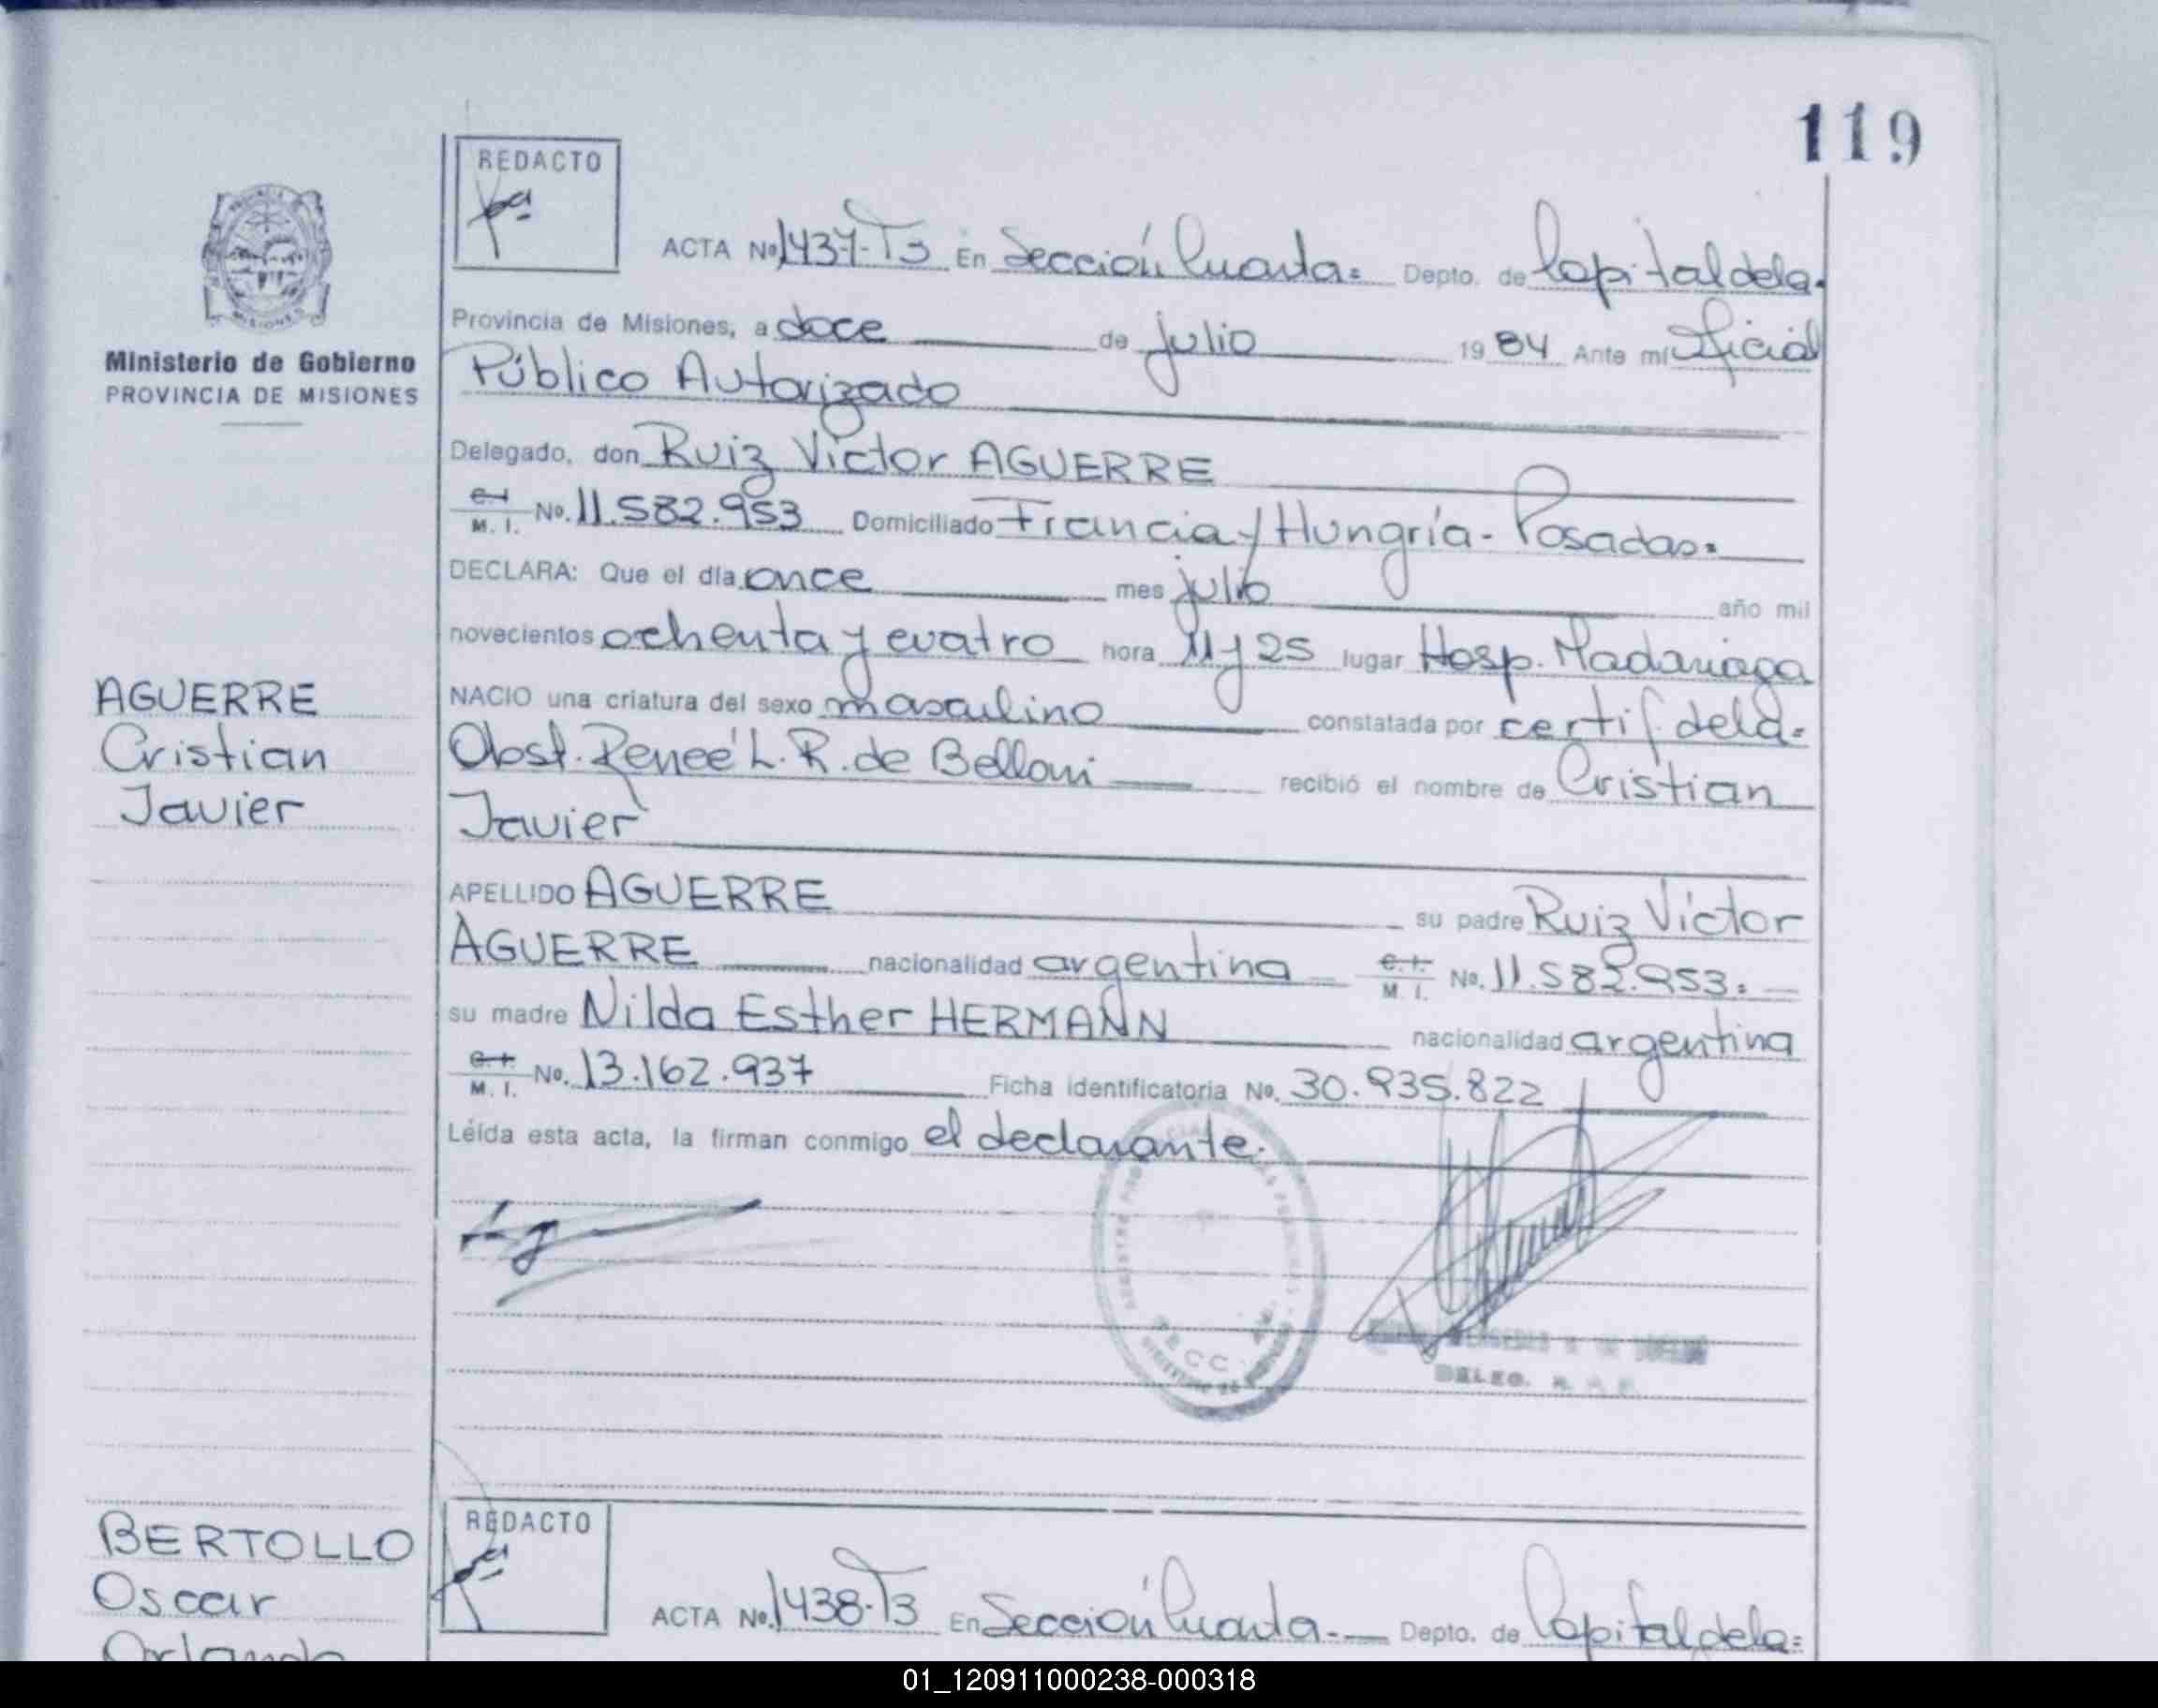 119
REDACTO
ACTA No. 1437-T3 En Sección Cuarta= Depto. de Capital de la-
Provincia de Misiones, a doce de julio 1984 Ante mí Oficial
Ministerio de Gobierno
PROVINCIA DE MISIONES
Público Autorizado
Delegado, don Ruiz Víctor AGUERRE
C.I. M. I. No. 11.582.953 Domiciliado Francia y Hungría- Posadas.
DECLARA: Que el día once mes julio año mil
novecientos ochenta y cuatro hora 11 y 25 lugar Hosp. Madariaga
AGUERRE
Cristian
Javier
NACIO una criatura del sexo masculino constatada por certif. de la=
Obst. Reneé L. R. de Belloni recibió el nombre de Cristian
Javier
APELLIDO AGUERRE su padre Ruiz Víctor
AGUERRE nacionalidad argentina C.I. M. I. No. 11.582.953.
su madre Nilda Esther HERMANN nacionalidad argentina
C.I. M. I. No. 13.162.937 Ficha identificatoria No. 30.935.822
Léida esta acta, la firman conmigo el declarante.
SECC
DELEG.
BERTOLLO
Oscar
Orlando
REDACTO
ACTA No. 1438-T3 En Sección Cuarta.- Depto. de Capital de la=
01_120911000238-000318